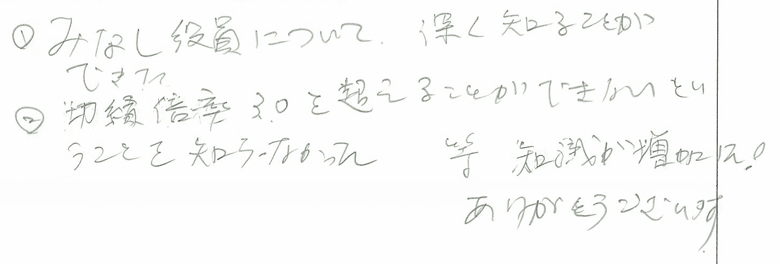 ① みなし役員について、深く知ることが
できた
② 功績倍率 3.0 を超えることができないとい
うことを知らなかった 等 知識が増加した!
ありがとうございます